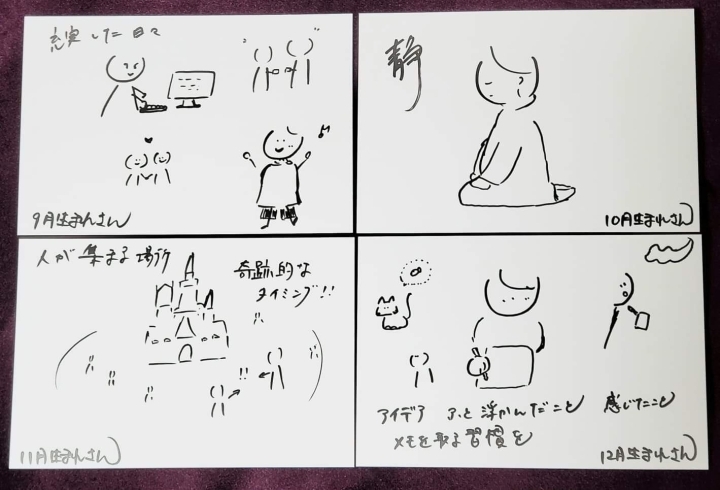 充実した日々
9月生まれさん
静
10月生まれさん
人が集まる場所
奇跡的な
タイミング!!
!!
11月生まれさん
アイデア ふと浮かんだこと 感じたこと
メモを取る習慣を
12月生まれさん